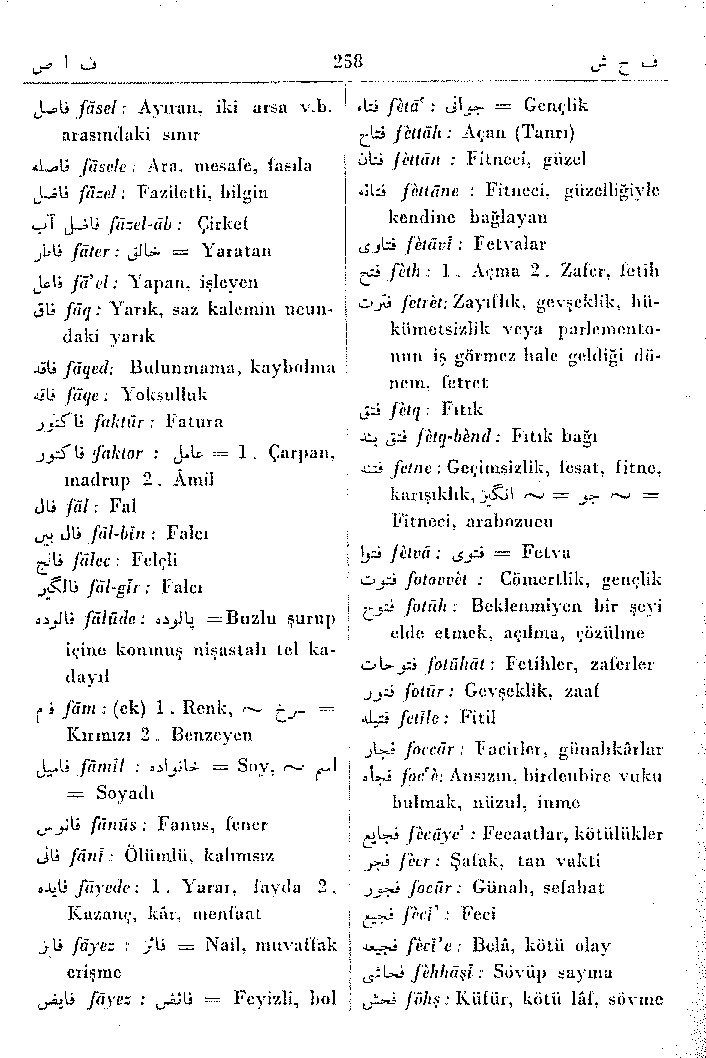 ف ا ص 258 ف ح ش
فاصل fāsel : Ayıran, iki arsa v.b.
arasındaki sınır
فاصله fāsele : Ara, mesafe, fasıla
فاضل fāzel : Faziletli, bilgin
فاضل آب fāzel-āb : Çirkef
فاطر fāter : خالق = Yaratan
فاعل fā'el : Yapan, işleyen
فاق fāq : Yarık, saz kalemin ucun-
daki yarık
فاقد fāqed : Bulunmama, kaybolma
فاقه fāqe : Yoksulluk
فاکتور faktūr : Fatura
فاکتور faktor : عامل = 1. Çarpan,
madrup 2. Âmil
فال fāl : Fal
فال بین fāl-bīn : Falcı
فالج fālec : Felçli
فالگیر fāl-gīr : Falcı
فالوده fālūde : پالوده =Buzlu şurup
içine konmuş nişastalı tel ka-
dayıf
فام fām : (ek) 1. Renk, سرخ ~ =
Kırmızı 2. Benzeyen
فامیل fāmīl : خانواده = Soy, اسم ~
= Soyadı
فانوس fānūs : Fanus, fener
فانی fānī : Ölümlü, kalımsız
فایده fāyede : 1. Yarar, fayda 2.
Kazanç, kâr, menfaat
فایز fāyez : فائز = Nail, muvaffak
erişme
فایض fāyez : فائض = Feyizli, bol
فتاء fètā' : جوانی = Gençlik
فتاح fèttāh : Açan (Tanrı)
فتان fèttān : Fitneci, güzel
فتانه fèttāne : Fitneci, güzelliğiyle
kendine bağlayan
فتاوی fètāvī : Fetvalar
فتح fèth : 1. Açma 2. Zafer, fetih
فترت fetrèt : Zayıflık, gevşeklik, hü-
kümetsizlik veya parlemento-
nun iş görmez hale geldiği dö-
nem, fetret
فتق fètq : Fıtık
فتق بند fètq-bènd : Fıtık bağı
فتنه fetne : Geçimsizlik, fesat, fitne,
karışıklık, انگیز ~ = جو ~ =
Fitneci, arabozucu
فتوا fètvā : فتوی = Fetva
فتوت fotovvèt : Cömertlik, gençlik
فتوح fotūh : Beklenmiyen bir şeyi
elde etmek, açılma, çözülme
فتوحات fotūhāt : Fetihler, zaferler
فتور fotūr : Gevşeklik, zaaf
فتیله fetīle : Fitil
فجار foccār : Facirler, günahkârlar
فجاه foc'è : Ansızın, birdenbire vuku
bulmak, nüzul, inme
فجایع fècāye' : Fecaatlar, kötülükler
فجر fècr : Şafak, tan vakti
فجور focūr : Günah, sefahat
فجیع fècī' : Feci
فجیعه fècī'e : Belâ, kötü olay
فحاشی fèhhāşī : Sövüp sayma
فحش föhş : Küfür, kötü lâf, sövme